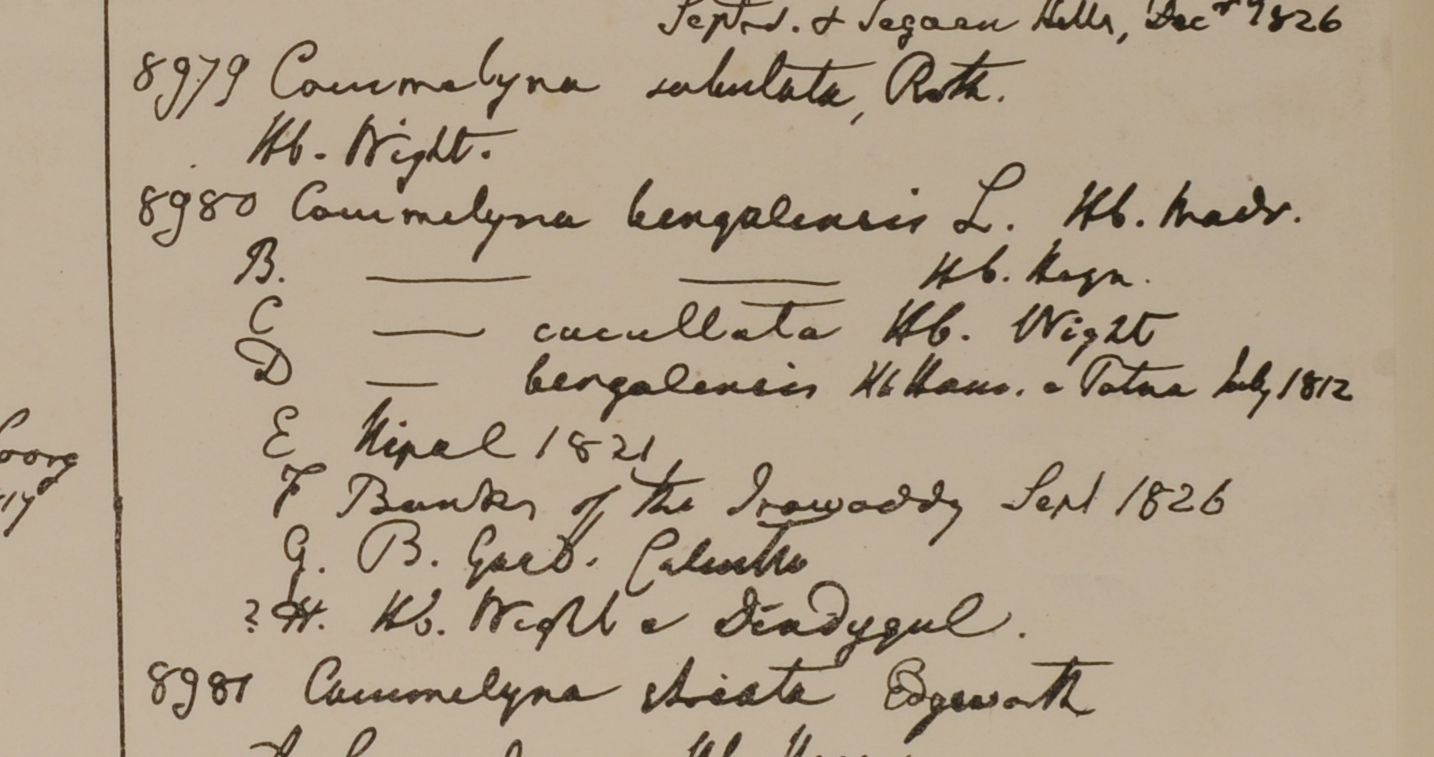 Septr. & Segaen Hills, Decr. 1826
8979 Commelyna subulata, Roth.
Hb. Wight.
8980 Commelyna bengalensis L. Hb. Madr.
B. ——— ——— Hb. Heyn.
C —— cucullata Hb. Wight
D — bengalensis Hb Ham. e Patna July 1812
E Nipal 1821
F Banks of the Irawaddy Sept 1826
G. B. Gard. Calcutta
? H. Hb. Wight e Dindygul.
8981 Commelyna striata Edgeworth